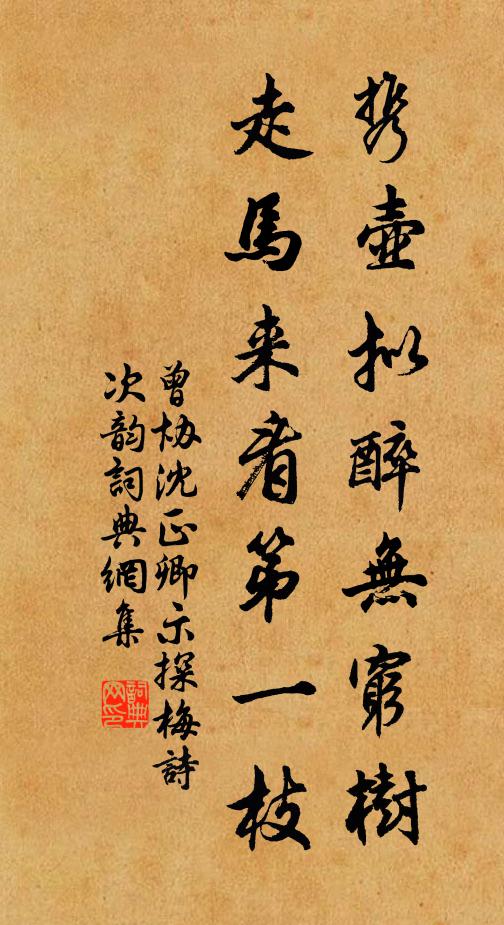 携壺拟醉無窮樹
走馬来看第一枝
曾协沈正卿示探梅詩
次韵詞典網集
詞典网印